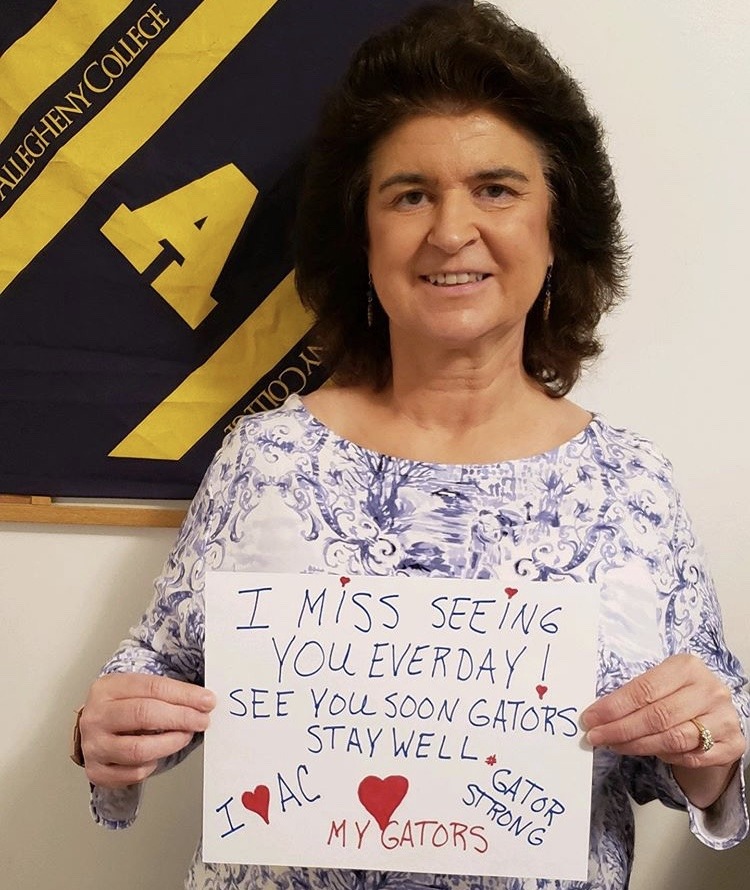 ALLEGHENY COLLEGE
A
I MISS SEEING
YOU EVERDAY!
SEE YOU SOON GATORS
STAY WELL
I ♥ AC
♥
MY GATORS
#GATOR
STRONG